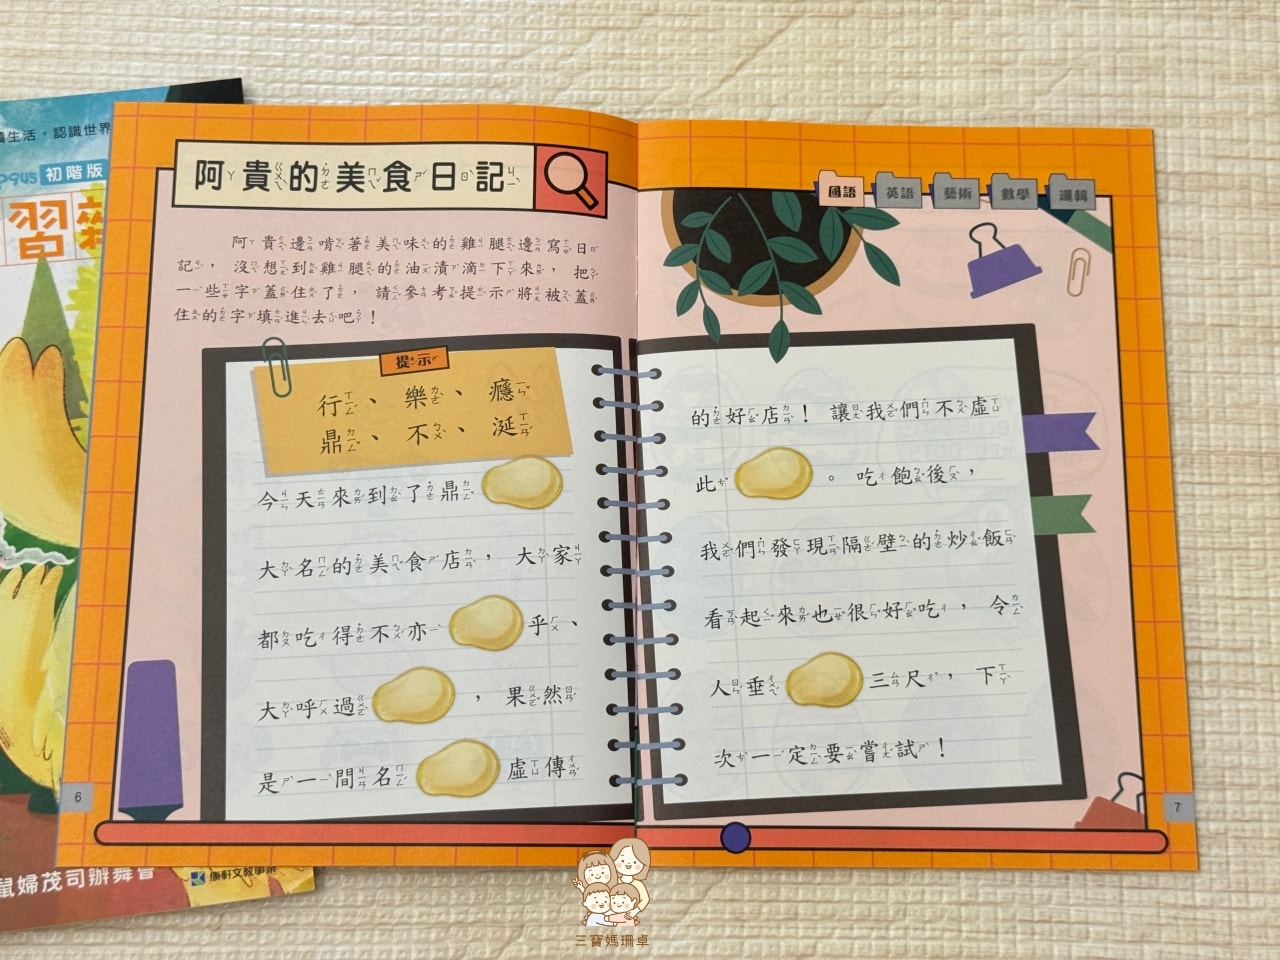 生活，認識世界
P945 初階版
習
阿貴的美食日記
阿貴邊啃著美味的雞腿邊寫日
記，沒想到雞腿的油漬滴下來，把
一些字蓋住了，請參考提示將被蓋
住的字填進去吧！
提示
行、樂、癮
鼎、不、涎
今天來到了鼎
大名的美食店，大家
都吃得不亦 乎、
大呼過 ，果然
是一間名 虛傳
6
國語 英語 藝術 數學 邏輯
的好店！讓我們不虛
此 。吃飽後，
我們發現隔壁的炒飯
看起來也很好吃，令
人垂 三尺，下
次一定要嘗試！
7
鼠婦茂司辦舞會
康軒文教事業
三寶媽珊卓